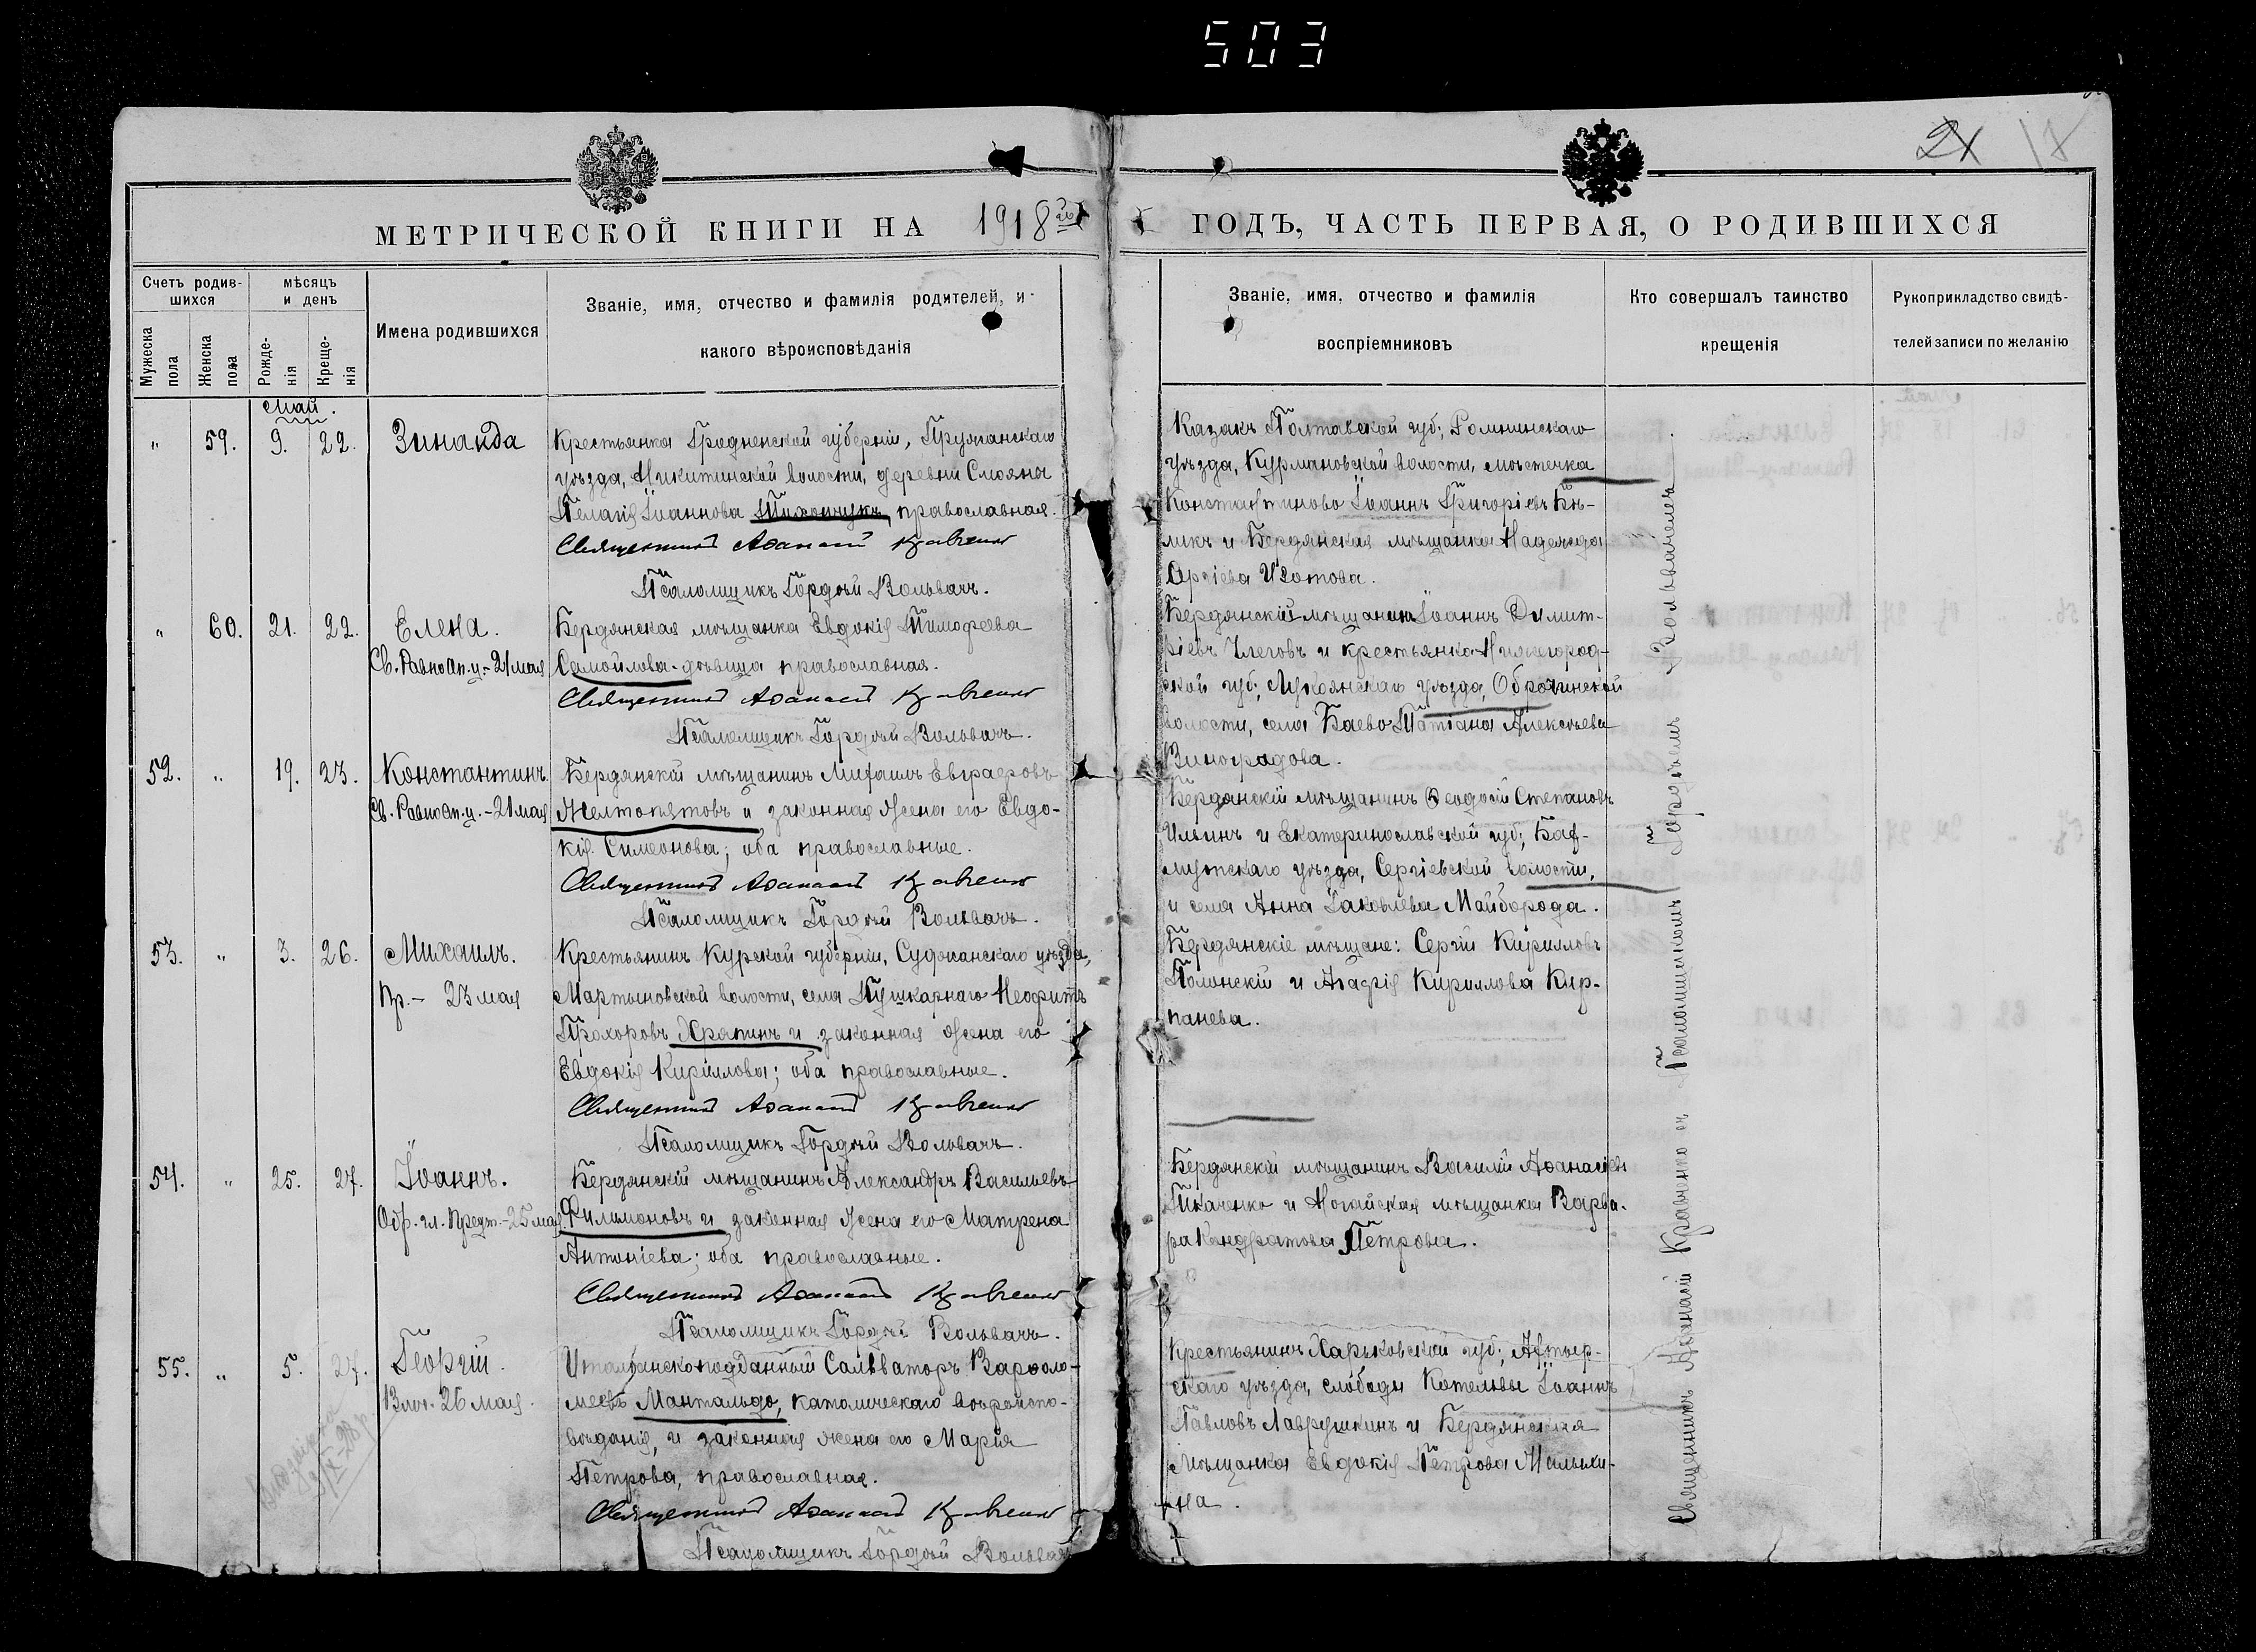 503
21 18
МЕТРИЧЕСКОЙ КНИГИ НА 1918 го ГОДЪ, ЧАСТЬ ПЕРВАЯ, О РОДИВШИХСЯ
Счетъ родив-
шихся
Мужеска
пола
Женска
пола
мѣсяцъ
и день
Рожде-
нія
Креще-
нія
Имена родившихся
Званіе, имя, отчество и фамилія родителей, и
какого вѣроисповѣданія
Званіе, имя, отчество и фамилія
воспріемниковъ
Кто совершалъ таинство
крещенія
Рукоприкладство свидѣ-
телей записи по желанію
Май.
" 59. 9. 22. Зинаида
Крестьянка Гродненской губерніи, Пружанскаго
уѣзда, Микитинской волости, деревни Смояны
Пелагія Іоаннова православная.
Священникъ Аѳанасій Кравченко
Псаломщикъ Гордѣй Вольвачъ.
Казакъ Полтавской губ; Роменнскаго
уѣзда, Курмановской волости, мѣстечка
Константиново Іоаннъ Григоріевъ Бѣ-
ликъ и Бердянская мѣщанка Надежда
Изотова.
" 60. 21. 22. Елена.
Св. Равноап. ц. - 21 мая
Бердянская мѣщанка Евдокія Тимофеева
Самойлова - дѣвица православная.
Священникъ Аѳанасій Кравченко
Псаломщикъ Гордѣй Вольвачъ.
Бердянскій мѣщанинъ Іоаннъ Димит-
ріевъ и крестьянка Нижегород-
ской губ; Лукоянскаго уѣзда, Оброчинской
волости, села Баево Татіана Алексѣева
Виноградова.
52. " 19. 23. Константинъ.
Св. Равноап. ц. - 21 мая
Бердянскій мѣщанинъ Михаилъ Евграфовъ
Желтопятовъ и законная жена его Евдо-
кія Симеонова; оба православные.
Священникъ Аѳанасій Кравченко
Псаломщикъ Гордѣй Вольвачъ.
Бердянскій мѣщанинъ Ѳеодосій Степановъ
Ильинъ и Екатеринославской губ; Бах-
мутскаго уѣзда, Сергіевской волости,
и села Анна Іаковлева Майборода.
53. " 3. 26. Михаилъ.
Пр. - 23 мая
Крестьянинъ Курской губерніи, Суджанскаго уѣзда,
Мартыновской волости, села Пушкарнаго Неофитъ
Прохоровъ Хряпинъ и законная жена его
Евдокія Кириллова; оба православные.
Священникъ Аѳанасій Кравченко
Псаломщикъ Гордѣй Вольвачъ.
Бердянскіе мѣщане: Сергій Кирилловъ
Полонскій и Агафія Кириллова Кир-
панева.
54. " 25. 27. Іоаннъ.
Обр. гл. Предт. - 25 мая.
Бердянскій мѣщанинъ Александръ Васильевъ
Филимоновъ и законная жена его Матрена
Антоніева; оба православные.
Священникъ Аѳанасій Кравченко
Псаломщикъ Гордѣй Вольвачъ.
Бердянскій мѣщанинъ Василій Аѳанасіевъ
Ткаченко и Ногайская мѣщанка Варва-
ра Кондратова Петрова.
55. " 5. 27. Георгій.
26 мая.
Итальянскоподданный Сальваторъ Варѳоло-
меевъ Мантальдо, католическаго вѣроиспо-
вѣданія, и законная жена его Марія
Петрова, православная.
Священникъ Аѳанасій Кравченко
Псаломщикъ Гордѣй Вольвачъ
Крестьянинъ Харьковской губ; Ахтыр-
скаго уѣзда, слободы Котельвы Іоаннъ
Павловъ Лаврушкинъ и Бердянская
мѣщанка Евдокія Петрова Милька-
на.
Священникъ Аѳанасій Кравченко съ Псаломщикомъ Гордѣемъ Вольвачемъ